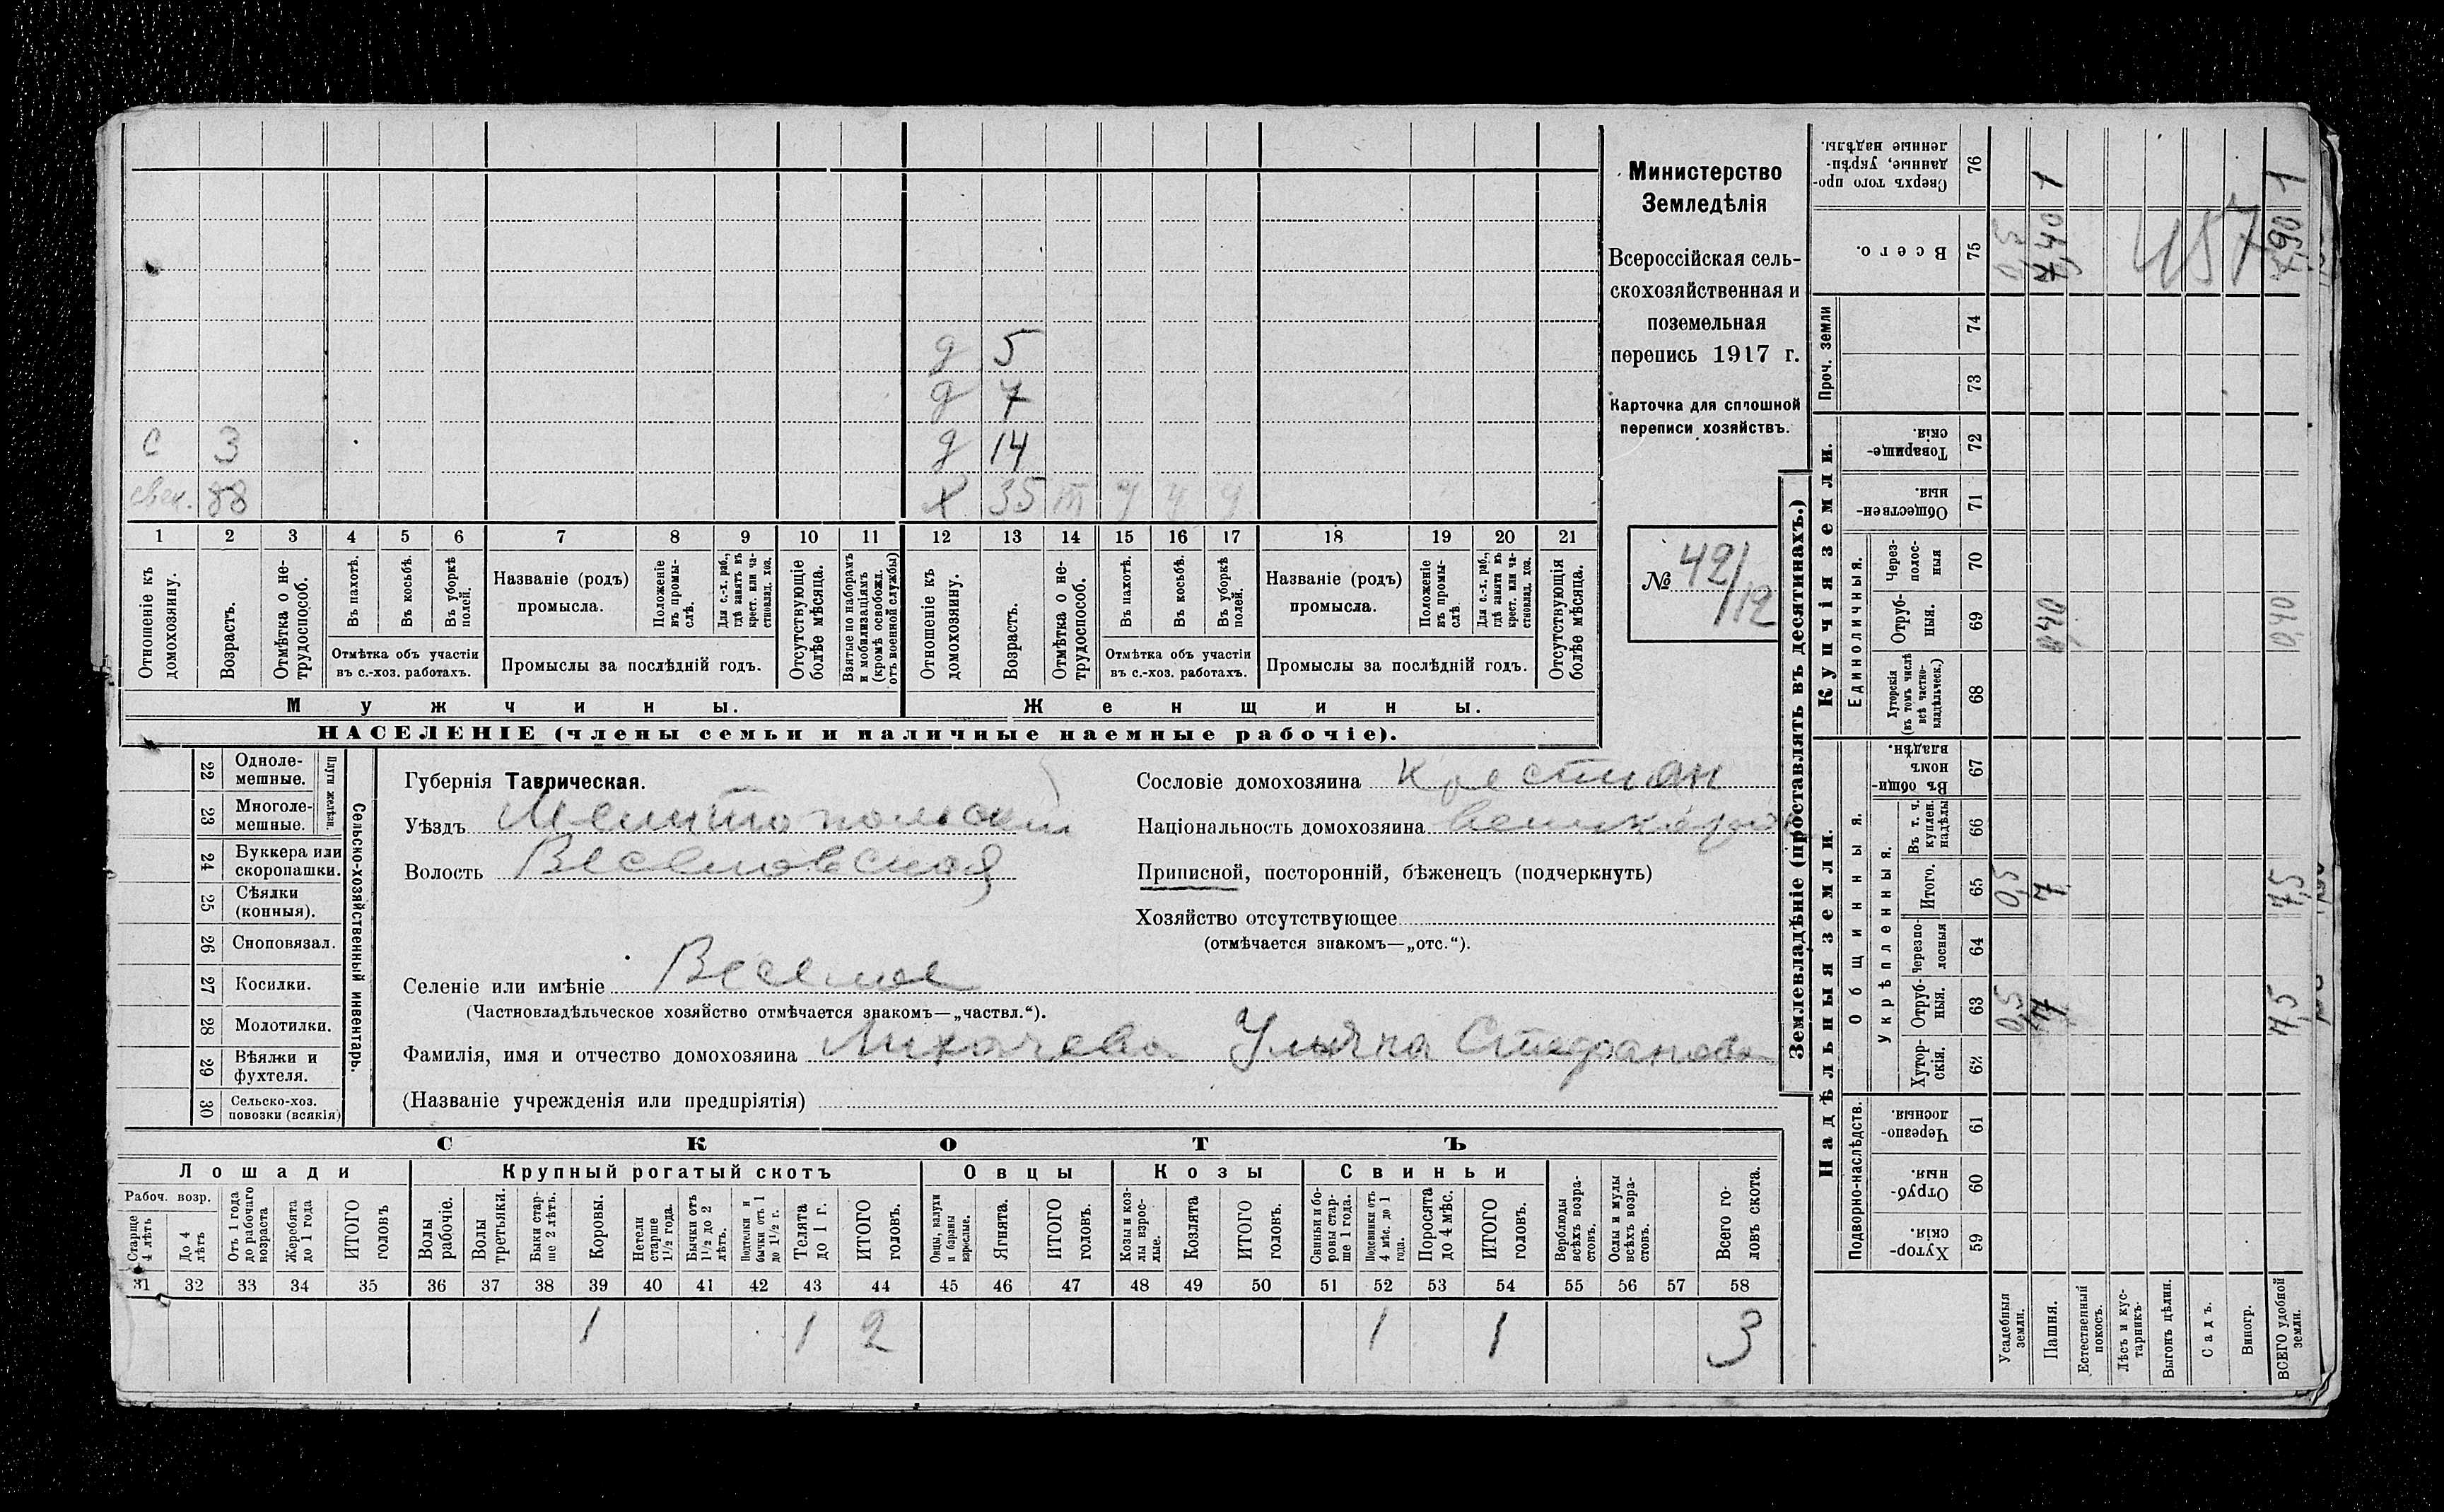 д 5
д 7
с 3 д 14
свек. 88 х 35 т у ч у
1 2 3 4 5 6 7 8 9 10 11 12 13 14 15 16 17 18 19 20 21
Отношеніе къ домохозяину.
Возрастъ.
Отмѣтка о не-трудоспособ.
Въ пахотѣ.
Въ косьбѣ.
Въ уборкѣ полей.
Отмѣтка объ участіи
въ с.-хоз. работахъ.
Названіе (родъ)
промысла.
Положеніе въ промы-слѣ.
Для с.-х. раб., гдѣ занятъ въ крест. или ча-стновлад. хоз.
Промыслы за послѣдній годъ.
Отсутствующіе болѣе мѣсяца.
Взятые по наборамъ и мобилизаціямъ (кромѣ освобожд. отъ военной службы)
Отношеніе къ домохозяину.
Возрастъ.
Отмѣтка о не-трудоспособ.
Въ пахотѣ.
Въ косьбѣ.
Въ уборкѣ полей.
Отмѣтка объ участіи
въ с.-хоз. работахъ.
Названіе (родъ)
промысла.
Положеніе въ промы-слѣ.
Для с.-х. раб., гдѣ занята въ крест. или ча-стновлад. хоз.
Промыслы за послѣдній годъ.
Отсутствующія болѣе мѣсяца.
Мужчины. Женщины.
НАСЕЛЕНІЕ (члены семьи и наличные наемные рабочіе).
Министерство
Земледѣлія
Всероссійская сель-
скохозяйственная и
поземельная
перепись 1917 г.
Карточка для сплошной
переписи хозяйствъ.
№ 42/12
Сельско-хозяйственный инвентарь.
Плуги желѣзн.
22 Одноле-мешные.
23 Многоле-мешные.
24 Буккера или скоропашки.
25 Сѣялки (конныя).
26 Сноповязал.
27 Косилки.
28 Молотилки.
29 Вѣялки и фухтеля.
30 Сельско-хоз. повозки (всякія)
Губернія Таврическая.
Уѣздъ Мелитопольскій
Волость Веселовская
Селеніе или имѣніе Веселое
(Частновладѣльческое хозяйство отмѣчается знакомъ—„частвл.“).
Фамилія, имя и отчество домохозяина Лихачева Ульяна Стефанова
(Названіе учрежденія или предпріятія)
Сословіе домохозяина крестьян
Національность домохозяина великорос
Приписной, посторонній, бѣженецъ (подчеркнуть)
Хозяйство отсутствующее
(отмѣчается знакомъ—„отс.“).
СКОТЪ
Лошади Крупный рогатый скотъ Овцы Козы Свиньи
Рабоч. возр.
Старше 4 лѣтъ
До 4 лѣтъ
Отъ 1 года до рабочаго возраста
Жеребята до 1 года
ИТОГО головъ
Волы рабочіе.
Волы третьяки.
Быки стар-ше 2 лѣтъ.
Коровы.
Нетели старше 1½ года.
Бычки отъ 1½ до 2 лѣтъ.
Подтелки и бычки отъ 1 до 1½ г.
Телята до 1 г.
ИТОГО головъ.
Овцы, валухи и бараны взрослые.
Ягнята.
ИТОГО головъ.
Козы и коз-лы взрос-лые.
Козлята
ИТОГО головъ.
Свиньи и бо-ровы стар-ше 1 года.
Подсвинки отъ 4 мѣс. до 1 года.
Поросята до 4 мѣс.
ИТОГО головъ.
Верблюды всѣхъ возра-стовъ.
Ослы и мулы всѣхъ возра-стовъ.
Всего го-ловъ скота.
31 32 33 34 35 36 37 38 39 40 41 42 43 44 45 46 47 48 49 50 51 52 53 54 55 56 57 58
1 1 2 1 1 3
Землевладѣніе (проставлять въ десятинахъ.)
Надѣльныя земли. Купчія земли. Проч. земли
Подворно-наслѣдств.
Общинныя.
Укрѣпленныя.
Единоличныя.
Хутор-скія. 59
Отруб-ныя. 60
Черезпо-лосныя. 61
Хутор-скія. 62
Отруб-ныя. 63
Черезпо-лосныя 64
Итого. 65
Въ т. ч. куплен. надѣлы 66
Въ общин-номъ владѣн. 67
Хуторскія (въ томъ числѣ всѣ частно-владѣльческ.) 68
Отруб-ныя. 69
Через-полос-ныя 70
Обществен-ныя. 71
Товарище-скія. 72
73
74
Всего. 75
Сверхъ того про-данные, укрѣп-ленные надѣлы. 76
Усадебныя земли. 0,5 0,5 0,5
Пашня. 7 7 0,40 7,40 1
Естественный покосъ.
Лѣсъ и кус-тарникъ.
Выгонъ цѣлин.
Садъ.
Виногр.
ВСЕГО удобной земли. 7,5 7,5 0,40 7,90 1
457